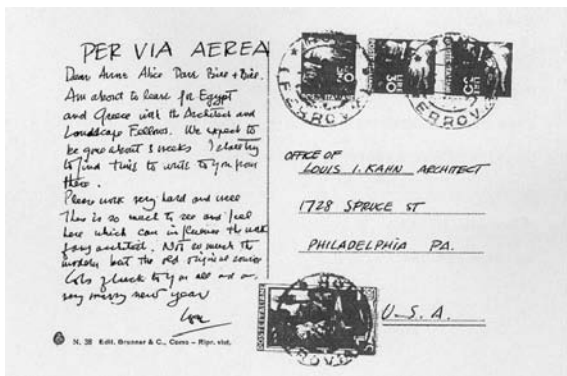 PER VIA AEREA
Dear Anne Alice Dave Bill + Bill.
Am about to leave for Egypt
and Greece with the Architect and
Landscape Fellows. We expect to
be gone about 3 weeks I shall try
to find time to write to you from
there.
Please work very hard and well
There is so much to see and feel
here which can influence the work
of any architect. Not so much the
modern but the old original sources
Lots of luck to you all and a
very merry new year
Lou
N. 38 Edit. Brunner & C., Como – Ripr. viet.
POSTE ITALIANE
30
35
FERROVIA
OFFICE OF
LOUIS I. KAHN ARCHITECT
1728 SPRUCE ST
PHILADELPHIA PA.
U.S.A.
POSTE ITALIANE